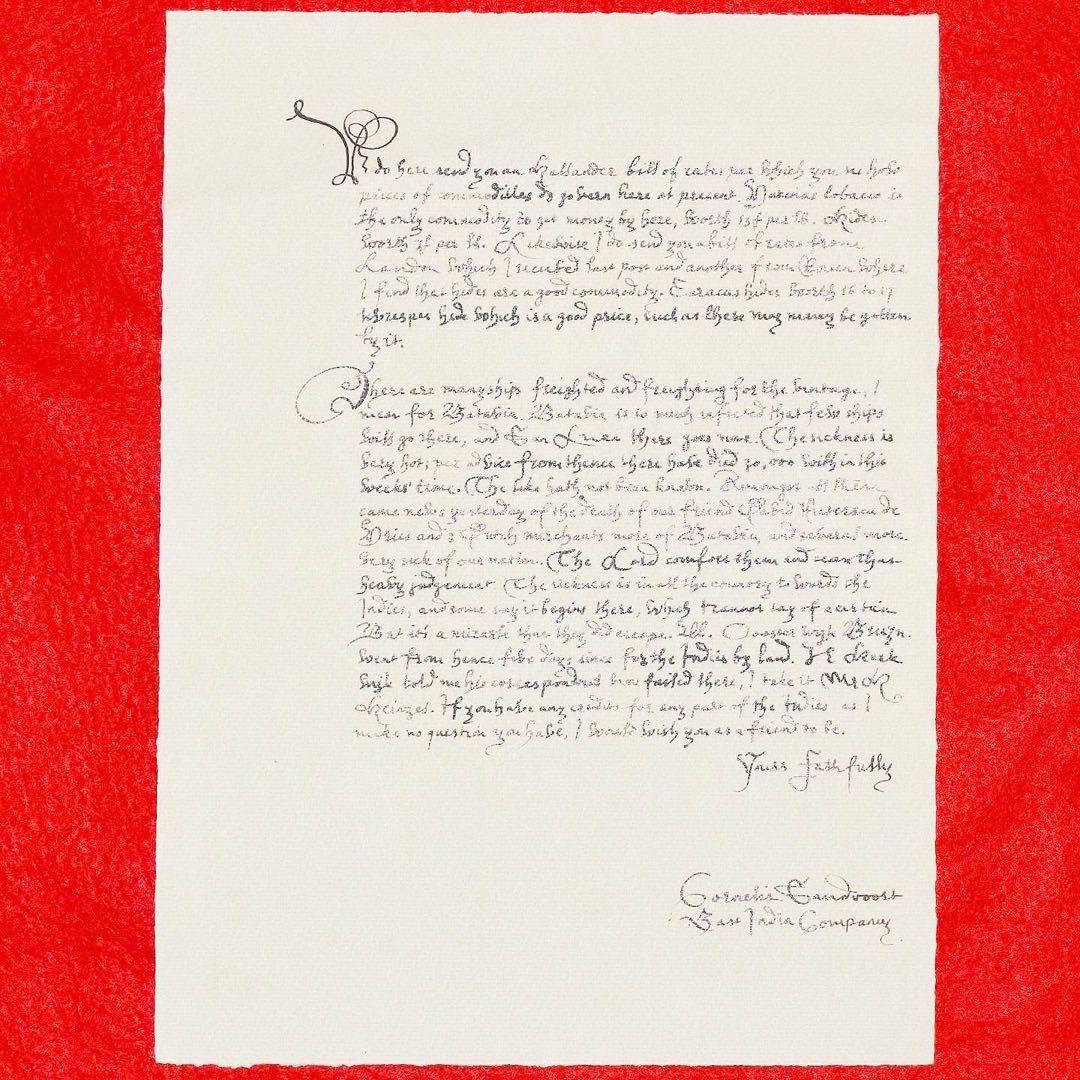 We do here send you an Hollander bill of rates per which you see how
prices of commoditles do govern here at present. Varinas tobacco is
the only commodity to get money by here, worth 13f per lb. Hides
worth 7f per lb. Likewise I do send you a bill of rates from
London which I received last post and another from Rouen where
I find that hides are a good commodity. Caracus hides worth 16 to 17
livres per hide which is a good price, such as there may money be gotten
by it.
There are many ship freighted and freighting for the vintage, I
mean for Batavia. Batavia is so much infected that few ships
will go there, and San Lucar there goes none. The sickness is
very hot; per advice from thence there have died 30,000 within this
weeks' time. The like hath not been known. Amongst all there
came news yesterday of the death of our friend David Pietersen de
Vries and 3 Dutch merchants more of Batavia, and several more
very sick of our nation. The Lord comfort them and cease that
heavy judgement The sickness is in all the country towards the
Indies, and some say it begins there, which I cannot say of a certain
But it's a miracle that they did escape. Ooster wyk Bruyn.
went from hence five days since for the Indies by land.
wyk told me his correspondent was failed there, I take it Mr R
If you have any credits for any part of the Indies as I
make no question you have, I would wish you as a friend to be.
Yours faithfully
Cornelis Sandvoort
East India Company